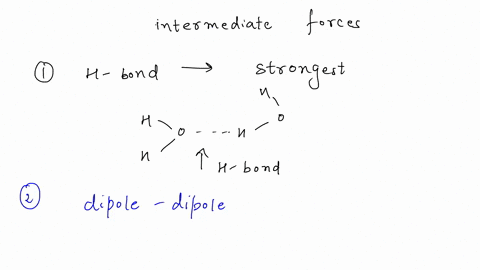 intermediate forces
① H-bond → strongest
H
H O --- H O
H
↑ H-bond
② dipole - dipole